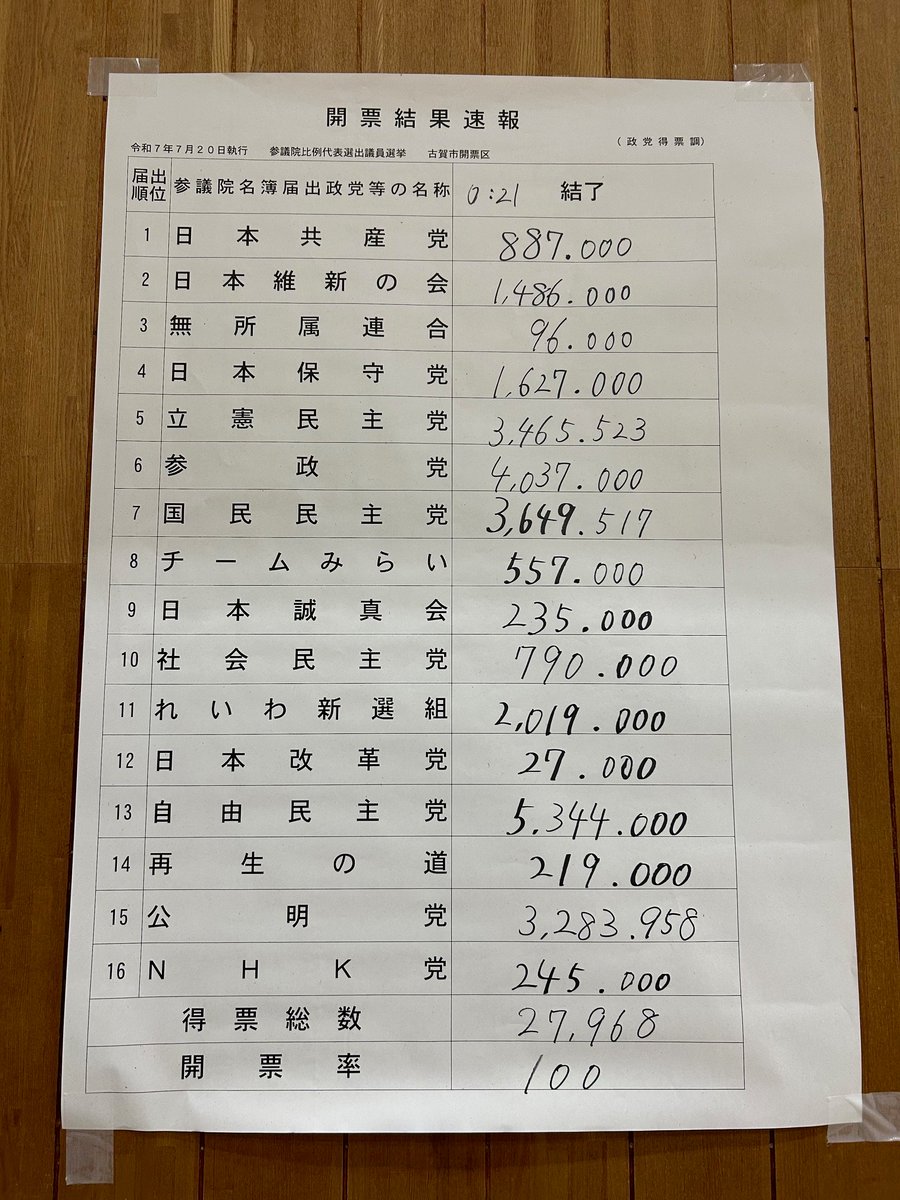 開票結果速報
(政党得票調)
令和7年7月20日執行 参議院比例代表選出議員選挙 古賀市開票区
届出順位 参議院名簿届出政党等の名称 0:21 結了
1 日本共産党 887.000
2 日本維新の会 1,486.000
3 無所属連合 96.000
4 日本保守党 1,627.000
5 立憲民主党 3,465.523
6 参政党 4,037.000
7 国民民主党 3,649.517
8 チームみらい 557.000
9 日本誠真会 235.000
10 社会民主党 790.000
11 れいわ新選組 2,019.000
12 日本改革党 27.000
13 自由民主党 5,344.000
14 再生の道 219.000
15 公明党 3,283.958
16 NHK党 245.000
得票総数 27,968
開票率 100